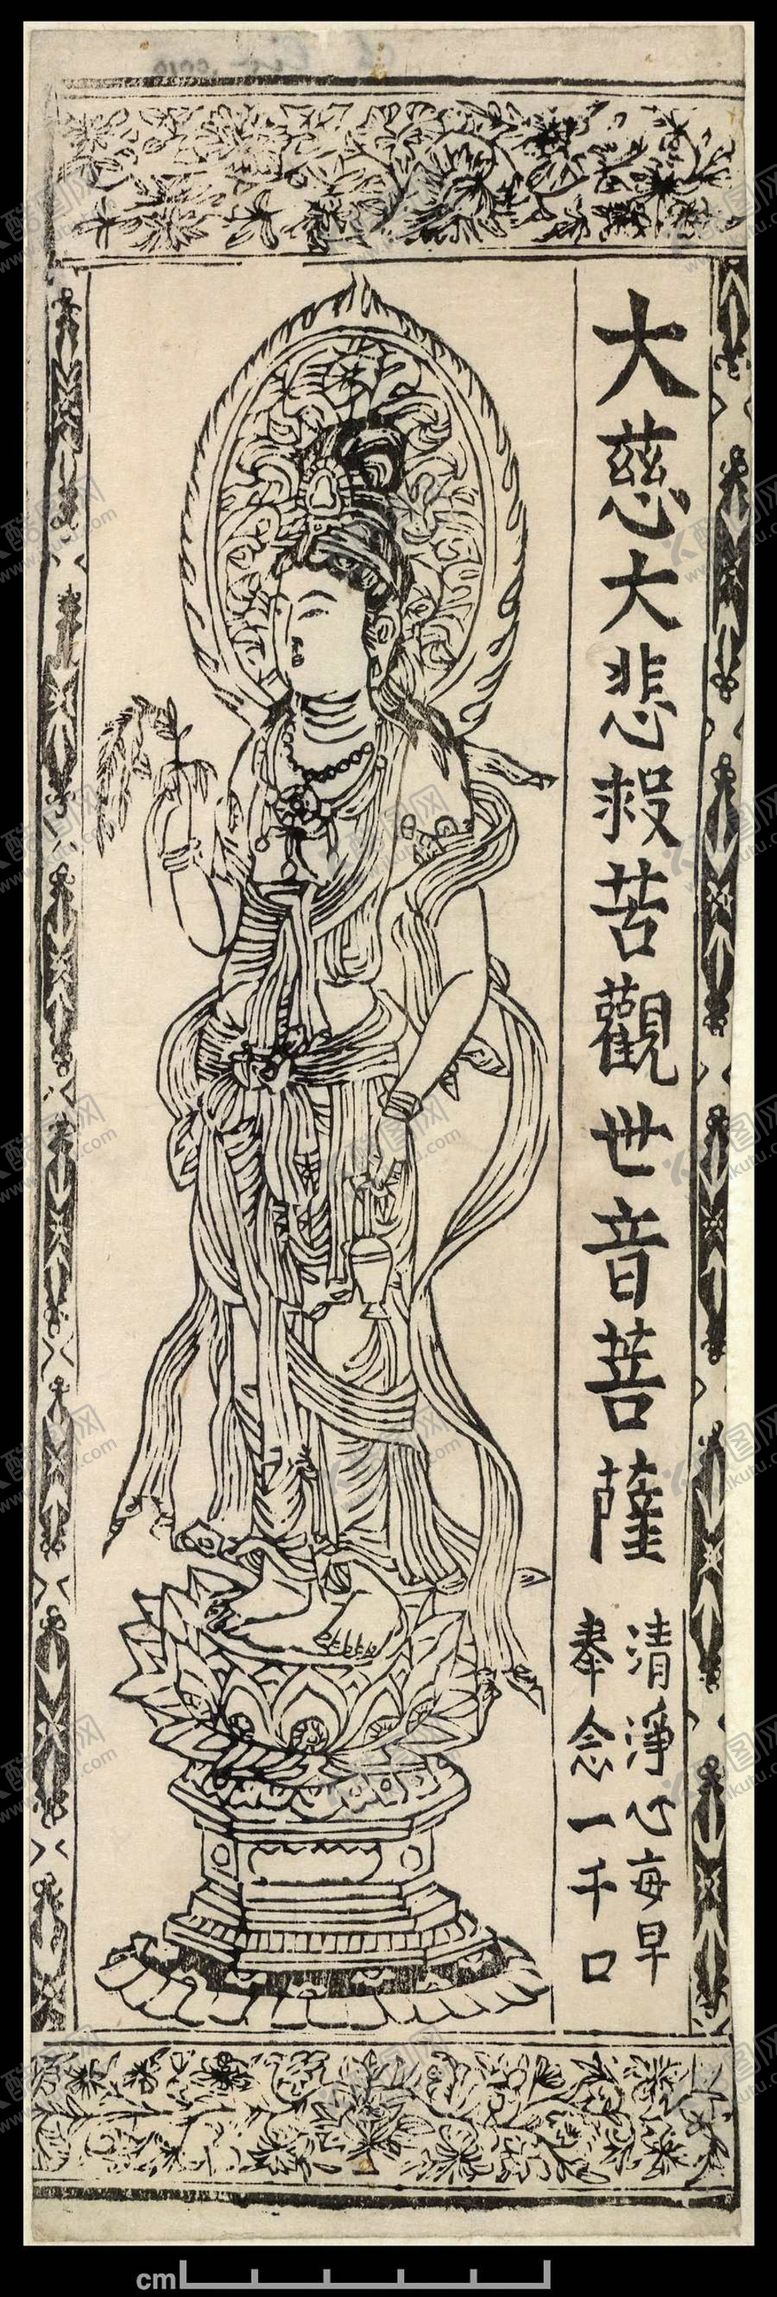 大慈大悲救苦觀世音菩薩
清淨心每早
奉念一千口
cm